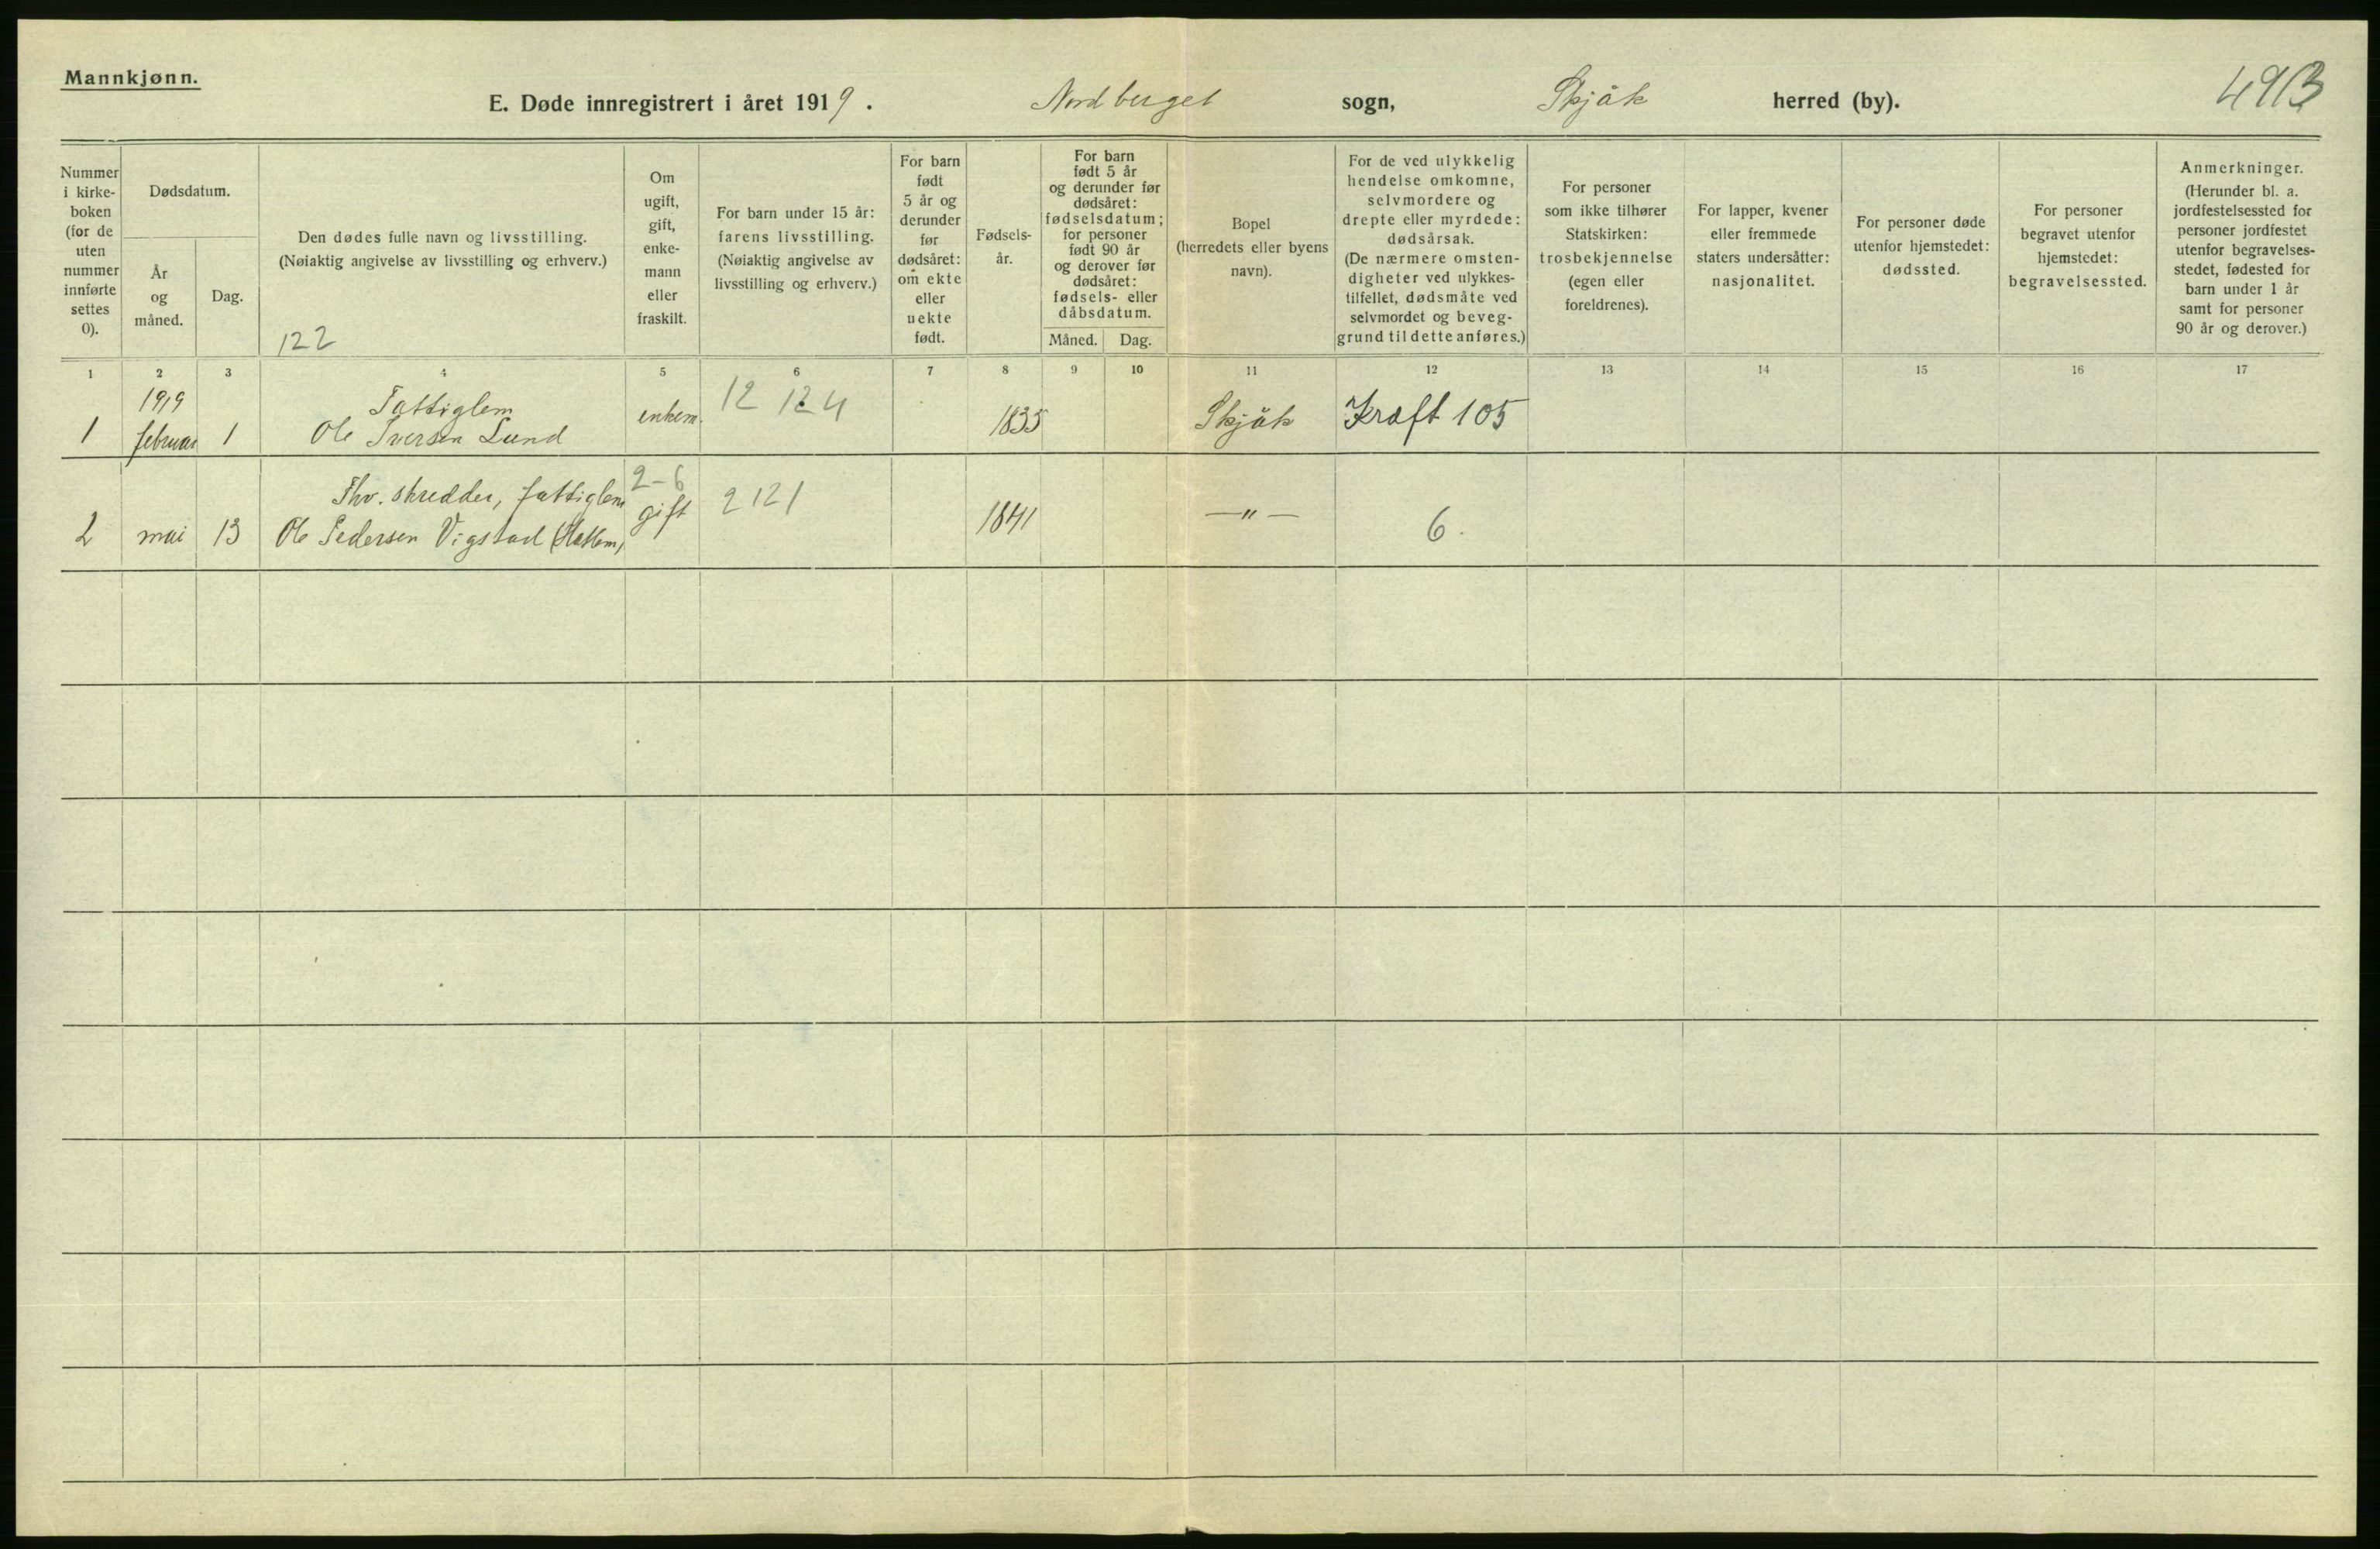 Mannkjønn.
E. Døde innregistrert i året 1919. Nordberget sogn, Skjåk herred (by).
Nummer i kirke-
boken
(for de
uten
nummer
innførte
settes
0).
Dødsdatum.
År
og
måned.
Dag.
Den dødes fulle navn og livsstilling.
(Nøiaktig angivelse av livsstilling og erhverv.)
122
Om
ugift,
gift,
enke-
mann
eller
fraskilt.
For barn under 15 år:
farens livsstilling.
(Nøiaktig angivelse av
livsstilling og erhverv.)
For barn
født
5 år og
derunder
før
dødsåret:
om ekte
eller
uekte
født.
Fødsels-
år.
For barn
født 5 år
og derunder før
dødsåret:
fødselsdatum;
for personer
født 90 år
og derover før
dødsåret:
fødsels- eller
dåbsdatum.
Måned. Dag.
Bopel
(herredets eller byens
navn).
For de ved ulykkelig
hendelse omkomne,
selvmordere og
drepte eller myrdede:
dødsårsak.
(De nærmere omsten-
digheter ved ulykkes-
tilfellet, dødsmåte ved
selvmordet og beveg-
grund til dette anføres.)
For personer
som ikke tilhører
Statskirken:
trosbekjennelse
(egen eller
foreldrenes).
For lapper, kvener
eller fremmede
staters undersåtter:
nasjonalitet.
For personer døde
utenfor hjemstedet:
dødssted.
For personer
begravet utenfor
hjemstedet:
begravelsessted.
Anmerkninger.
(Herunder bl. a.
jordfestelsessted for
personer jordfestet
utenfor begravelses-
stedet, fødested for
barn under 1 år
samt for personer
90 år og derover.)
1 2 3 4 5 6 7 8 9 10 11 12 13 14 15 16 17
1919 Fattiglem enkem. 12 124
1 februar 1 Ole Iversen Lund 1835 Skjåk Kræft 105
Fhv. skredder, fattiglem 2-6 gift 2 121
2 mai 13 Ole Pedersen Vigstad 1841 —"— 6.